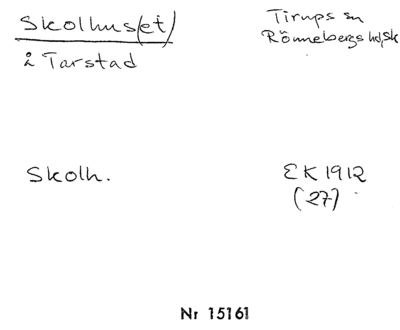 Skolhus(et)
Tirups sn
Rönnebergs hd, Sk
å Tarstad
Skolh.
EK 1912
(27)
Nr 15161